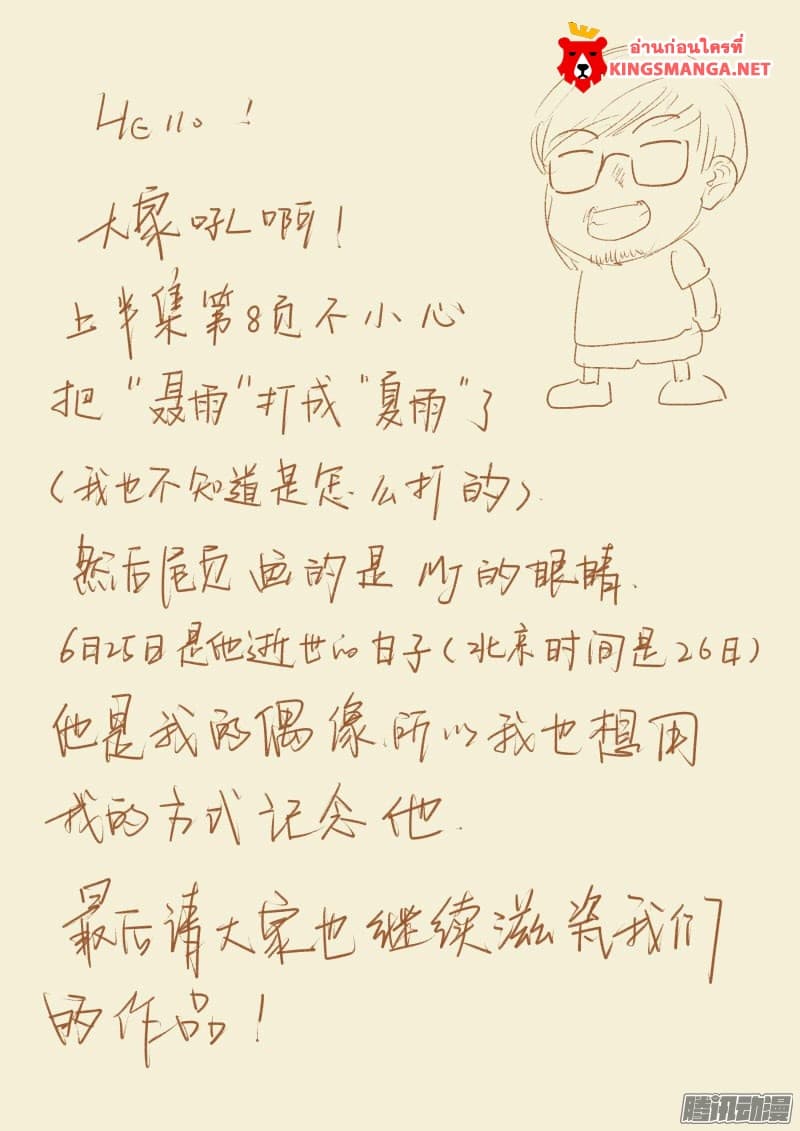 อ่านก่อนใครที่
KINGSMANGA.NET
HEllo!
大家吼啊!
上半集第8页不小心
把"聂雨"打成"夏雨"了
(我也不知道是怎么打的).
然后尾页画的是MJ的眼睛.
6日25日是他逝世的日子(北京时间是26日)
他是我的偶像.所以我也想用
我的方式记念他.
最后请大家也继续滋瓷我们
的作品!
腾讯动漫